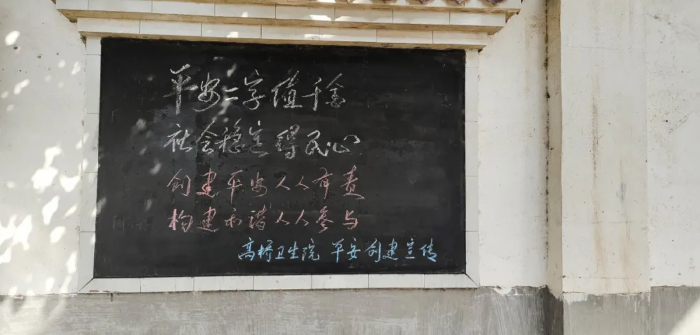 平安二字值千金
社会稳定得民心
创建平安人人有责
构建和谐人人参与
高桥卫生院 平安创建宣传